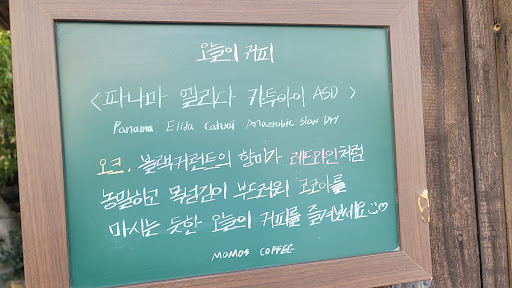 오늘의 커피
< 파나마 엘리다 카투아이 ASD >
Panama Elida Catuai Anaerobic Slow Dry
오크, 블랙커런트의 향미가 레드와인처럼
농밀하고 목넘김이 부드러워 코코아를
마시는 듯한 오늘의 커피를 즐겨보세요
MOMOS COFFEE